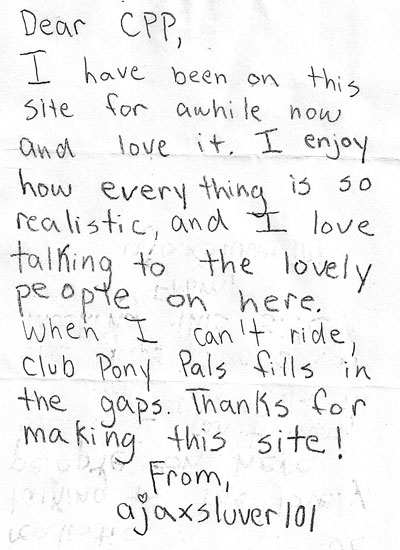 Dear CPP,
I have been on this
site for awhile now
and love it. I enjoy
how everything is so
realistic, and I love
talking to the lovely
people on here.
When I can't ride,
Club Pony Pals fills in
the gaps. Thanks for
making this site!
From,
ajaxsluver101